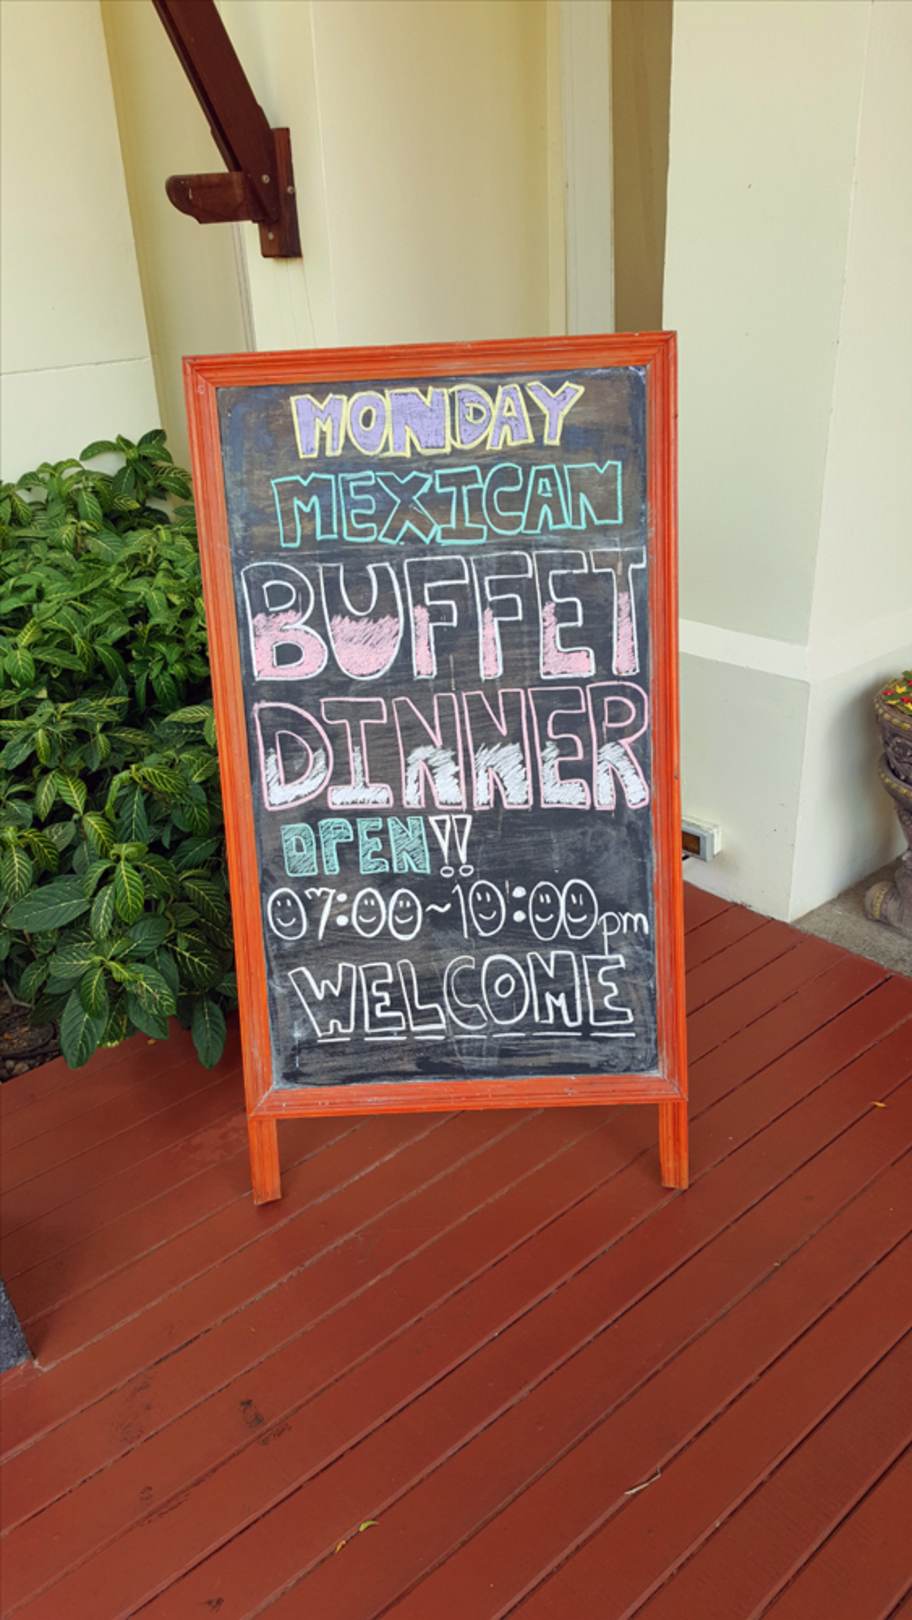 MONDAY
MEXICAN
BUFFET
DINNER
OPEN!!
07:00~10:00pm
WELCOME